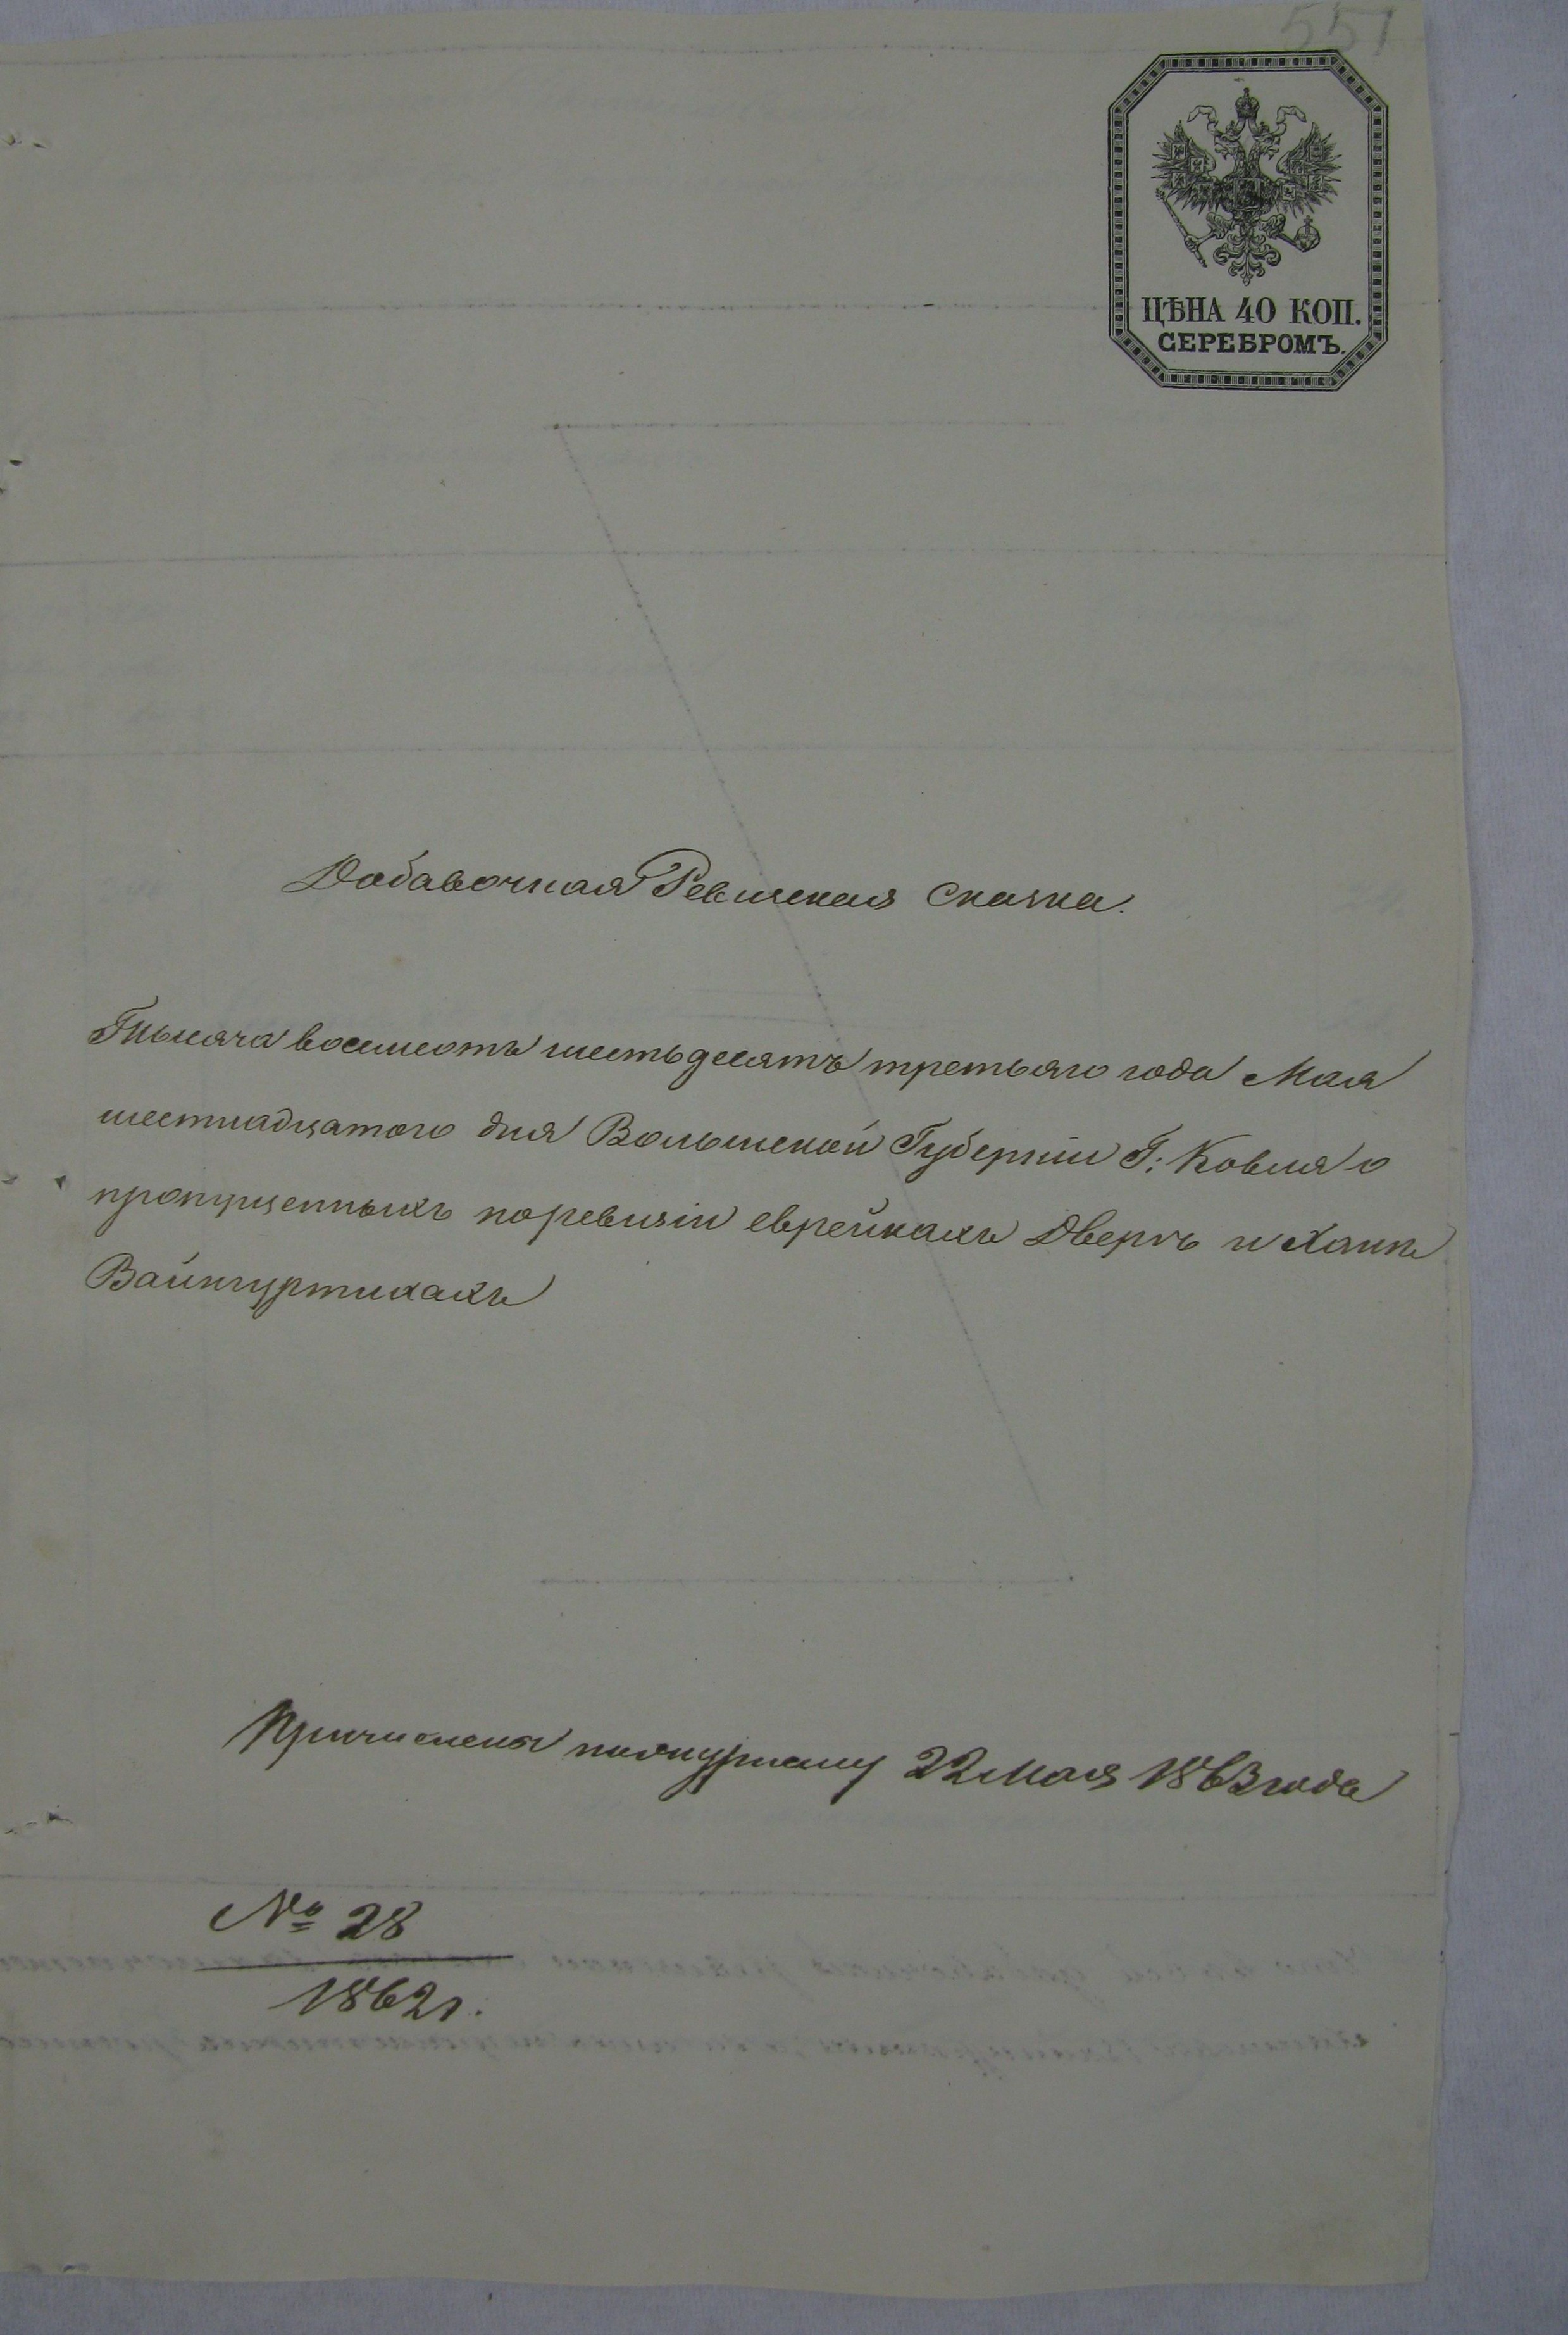 551
ЦѢНА 40 КОП.
СЕРЕБРОМЪ.
Добавочная Ревизская Сказка.
Тысяча восемьсотъ шестьдесятъ третьяго года Мая
шестнадцатого дня Волынской Губерніи Г: Ковля о
пропущенныхъ поревизіи еврейкахъ Дверѣ и Ханѣ
Вайнгуртихахъ
Причислена 22 Мая 1863 года
№ 28
1862 г.